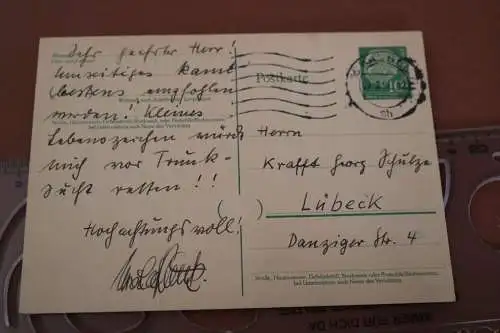 Sehr geehrter Herr!
Umseitiges kann
bestens empfohlen
werden! Kleines
Lebenszeichen würde
mich vor Trunk-
sucht retten!!
Hochachtungsvoll!
Postkarte
10
Herrn
Krafft Georg Schulze
( ) Lübeck
Danziger Str. 4
Straße, Hausnummer, Gebäudeteil, Stockwerk oder Postschließfachnummer,
bei Untermietern auch Name des Vermieters